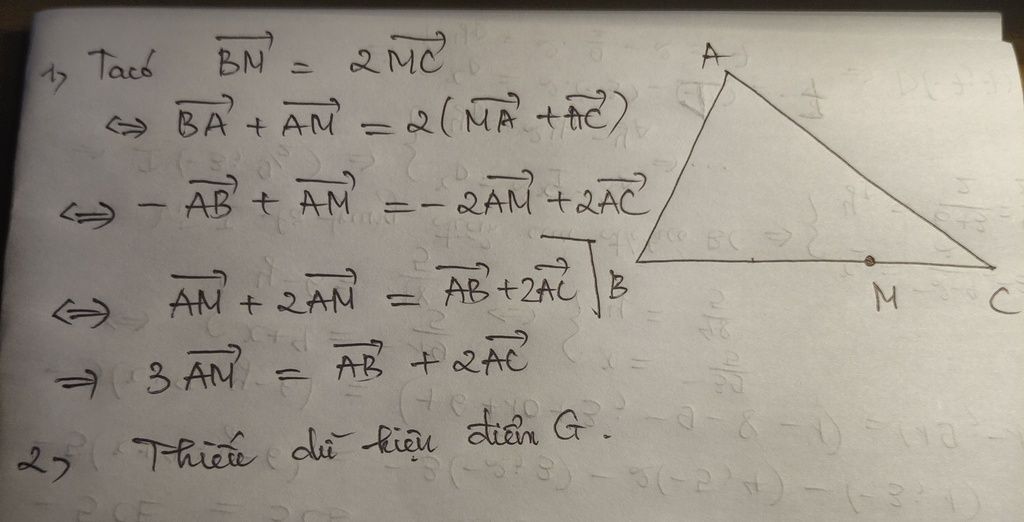 1, Ta có $\overrightarrow{BM} = 2\overrightarrow{MC}$
$\Leftrightarrow \overrightarrow{BA} + \overrightarrow{AM} = 2(\overrightarrow{MA} + \overrightarrow{AC})$
$\Leftrightarrow -\overrightarrow{AB} + \overrightarrow{AM} = -2\overrightarrow{AM} + 2\overrightarrow{AC}$
$\Leftrightarrow \overrightarrow{AM} + 2\overrightarrow{AM} = \overrightarrow{AB} + 2\overrightarrow{AC}$
$\Rightarrow 3\overrightarrow{AM} = \overrightarrow{AB} + 2\overrightarrow{AC}$
2, Thiếu dữ kiện điểm G.
A
B
M
C